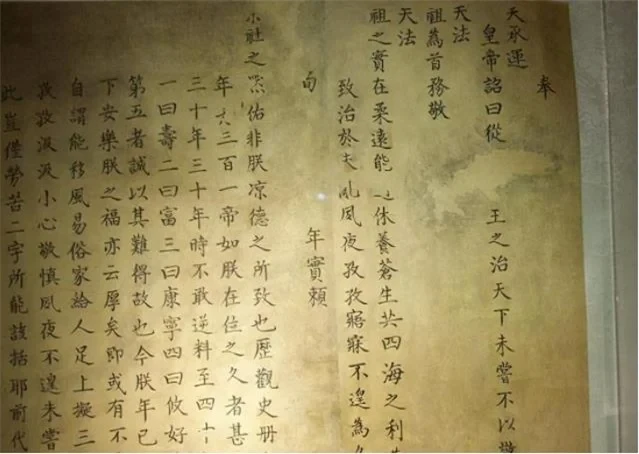 奉
天承運
皇帝詔曰從 王之治天下未嘗不以敬
天法
祖為首務敬
天法
祖之實在柔遠能 休養蒼生共四海之利
致治於 亂夙夜孜孜寤寐不遑為久
旬 年實賴
小社之 佑非朕凉德之所致也歷觀史册
年 三百一帝如朕在位之久者甚
三十年三十年時不敢逆料至四十
一曰壽二曰富三曰康寧四曰攸好
第五者誠以其難得故也今朕年已
下安樂朕之福亦云厚矣即或有不
自謂能移風易俗家給人足上擬三
孜孜汲汲小心敬慎夙夜不遑未嘗
此豈僅勞苦二字所能該括耶前代